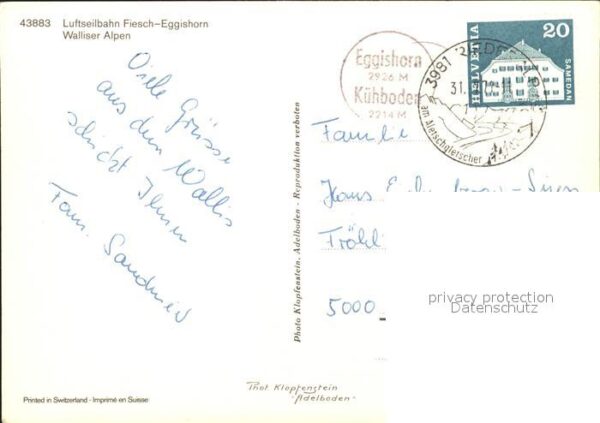 43883 Luftseilbahn Fiesch-Eggishorn
Walliser Alpen
Viele Grüsse
aus dem Wallis
schickt Ihnen
Fam.
Eggishorn
2926 M
Kühboden
2214 M
HELVETIA
20
SAMEDAN
3981
31.
am Aletschgletscher
Familie
Hans
Fröhl
5000
privacy protection
Datenschutz
Photo Klopfenstein, Adelboden - Reproduktion verboten
Phot Klopfenstein
"Adelboden"
Printed in Switzerland - Imprimé en Suisse